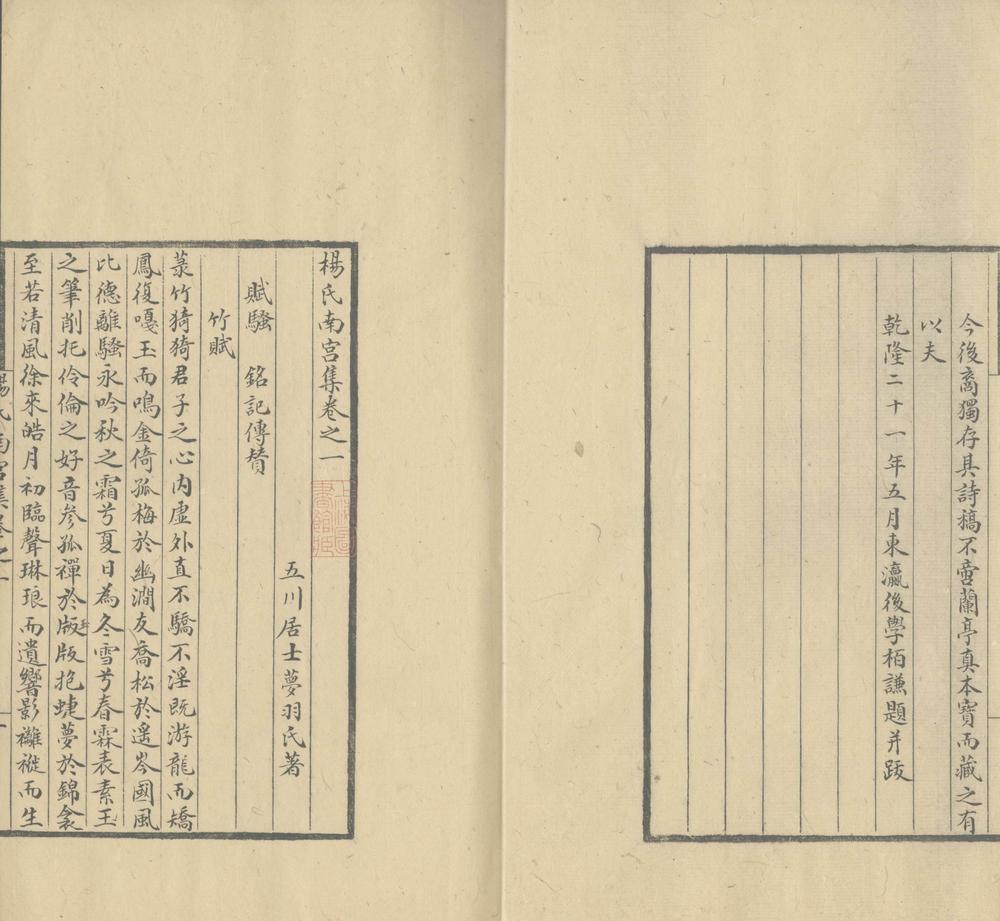 今後裔獨存其詩稿不啻蘭亭真本寶而藏之有
以夫
乾隆二十一年五月東瀛後學栢謙題并跋
楊氏南宮集卷之一
五川居士夢羽氏著
賦騷 銘記傳贊
竹賦
菉竹猗猗君子之心内虛外直不驕不淫既游龍而矯
鳳復嘎玉而鳴金倚孤梅於幽澗友喬松於遙岑國風
比德離騷永吟秋之霜兮夏日為冬雪兮春霖表素王
之筆削托伶倫之好音參孤禪於版版抱蜨夢於錦衾
至若清風徐來皓月初臨聲琳琅而遺響影襳褷而生
楊氏南宮集卷之一
上海圖書館藏